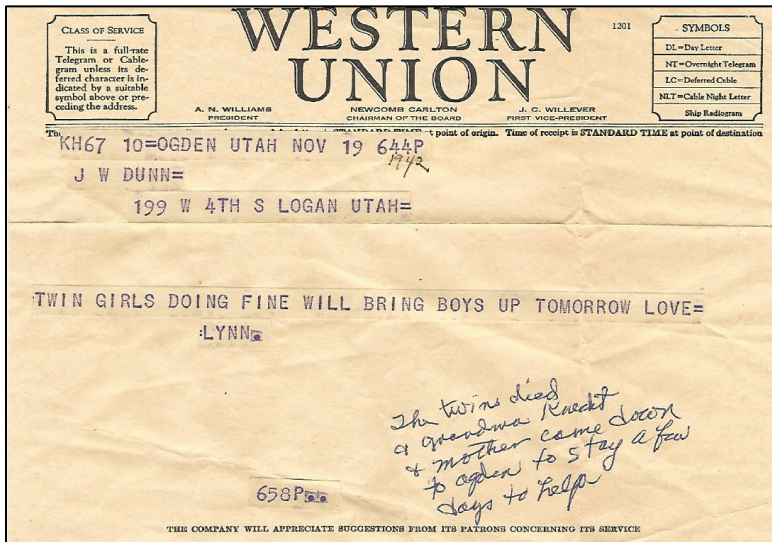 CLASS OF SERVICE
This is a full-rate
Telegram or Cable-
gram unless its de-
ferred character is in-
dicated by a suitable
symbol above or pre-
ceding the address.
WESTERN
UNION
1201
A. N. WILLIAMS
PRESIDENT
NEWCOMB CARLTON
CHAIRMAN OF THE BOARD
J. C. WILLEVER
FIRST VICE-PRESIDENT
SYMBOLS
DL=Day Letter
NT=Overnight Telegram
LC=Deferred Cable
NLT=Cable Night Letter
Ship Radiogram
STANDARD TIME at point of origin. Time of receipt is STANDARD TIME at point of destination
KH67 10=OGDEN UTAH NOV 19 644P
1942
J W DUNN=
199 W 4TH S LOGAN UTAH=
TWIN GIRLS DOING FINE WILL BRING BOYS UP TOMORROW LOVE=
:LYNN
The twins died
& grandma Knecht
& mother came down
to ogden to stay a few
days to help
658P
THE COMPANY WILL APPRECIATE SUGGESTIONS FROM ITS PATRONS CONCERNING ITS SERVICE